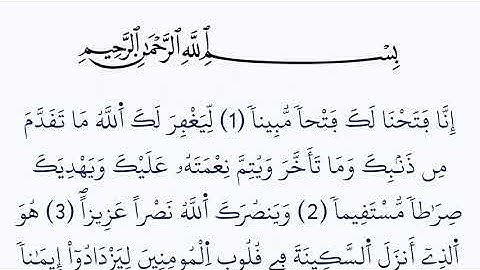 بِسْمِ اللَّهِ الرَّحْمَٰنِ الرَّحِيمِ
إِنَّا فَتَحْنَا لَكَ فَتْحاٗ مُّبِيناٗ (1) لِّيَغْفِرَ لَكَ اَ۬للَّهُ مَا تَقَدَّمَ
مِن ذَنۢبِكَ وَمَا تَأَخَّرَ وَيُتِمَّ نِعْمَتَهُۥ عَلَيْكَ وَيَهْدِيَكَ
صِرَٰطاٗ مُّسْتَقِيماٗ (2) وَيَنصُرَكَ اَ۬للَّهُ نَصْراً عَزِيزاًۖ (3) هُوَ
اَ۬لذِےٓ أَنزَلَ اَ۬لسَّكِينَةَ فِے قُلُوبِ اِ۬لْمُومِنِينَ لِيَزْدَادُوٓاْ إِيمَٰناٗ